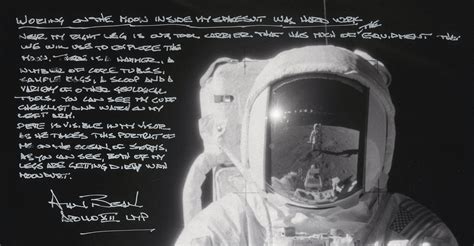 WORKING ON THE MOON INSIDE MY SPACESUIT WAS HARD WORK. THE
NEAR MY RIGHT LEG IS OUR TOOL CARRIER THAT HAS MUCH OF EQUIPMENT THAT
WE WILL USE TO EXPLORE THE
MOON. THERE IS A HAMMER, A
NUMBER OF CORE TUBES,
SAMPLE BAGS, A SCOOP AND A
VARIETY OF OTHER GEOLOGICAL
TOOLS. YOU CAN SEE MY CUFF
CHECKLIST AND WATCH ON MY
LEFT ARM.
PETE IS VISIBLE IN MY VISOR
AS HE TAKES THIS PORTRAIT OF
ME ON THE OCEAN OF STORMS.
AS YOU CAN SEE, BOTH OF MY
LEGS ARE GETTING DIRTY WITH
MOON DUST.
Alan Bean
APOLLO XII LMP